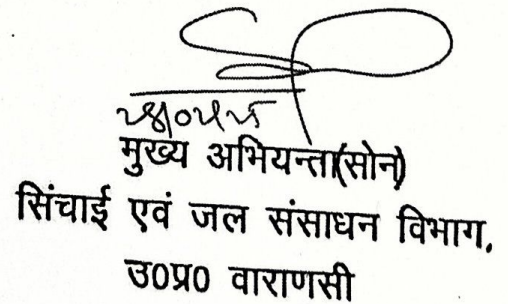 मुख्य अभियन्ता(सोन)
सिंचाई एवं जल संसाधन विभाग,
उ0प्र0 वाराणसी